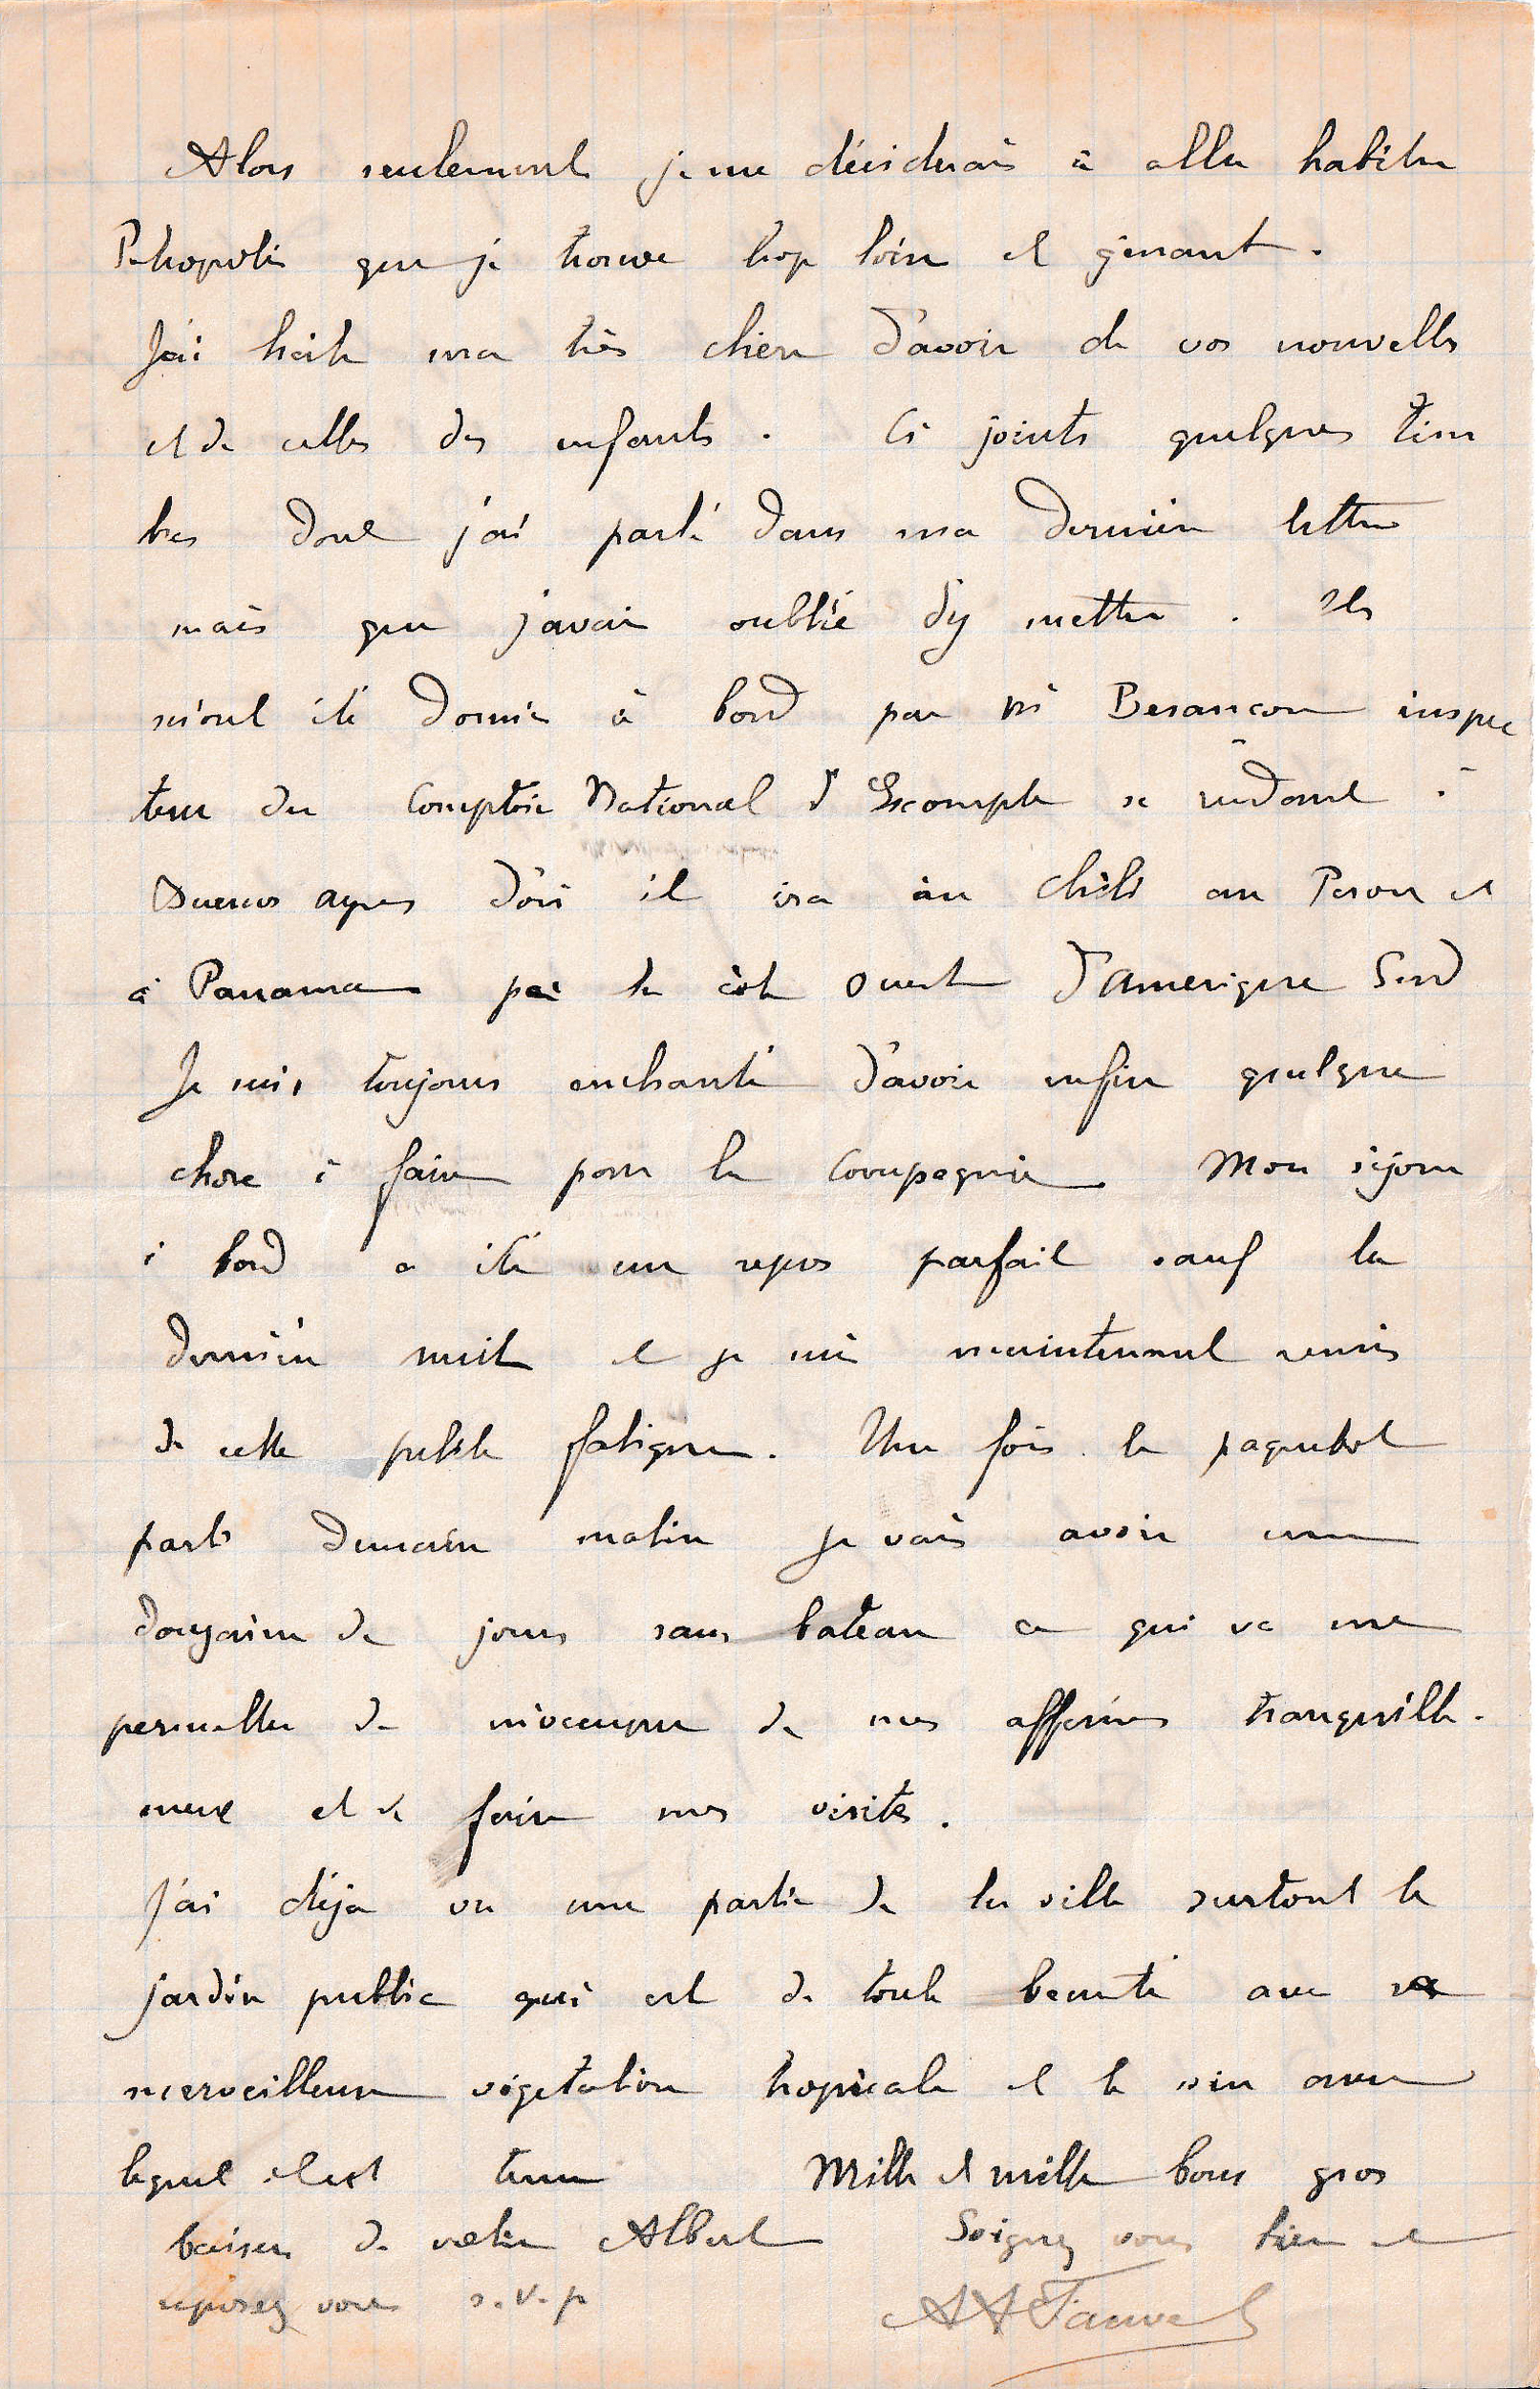 Alors seulement je me déciderais à aller habiter
Petropolis que je trouve trop loin et gênant.
J'ai hâte ma très chère d'avoir de vos nouvelles
et de celles des enfants. Ci joints quelques tim
bres dont j'ai parlé dans ma dernière lettre
mais que j'avais oublié d'y mettre. Ils
m'ont été donnés à bord par Mr Besançon inspec
teur du Comptoir National d'Escompte se rendant à
Buenos Ayres d'où il ira au Chili au Perou et
à Panama par la côte Ouest d'Amerique Sud
Je suis toujours enchanté d'avoir enfin quelque
chose à faire pour la Compagnie. Mon séjour
à bord a été un repos parfait sauf la
dernière nuit et je suis maintenant remis
de cette petite fatigue. Une fois le paquebot
parti demain matin je vais avoir une
douzaine de jours sans bateau ce qui va me
permettre de m'occuper de mes affaires tranquille-
ment et de faire mes visites.
J'ai déja vu une partie de la ville surtout le
jardin public qui est de toute beauté avec sa
merveilleuse végetation tropicale et le soin avec
lequel il est tenu Mille et mille bons gros
baisers de votre Albert Soignez vous bien et
reposez vous s.v.p
AA Fauvel